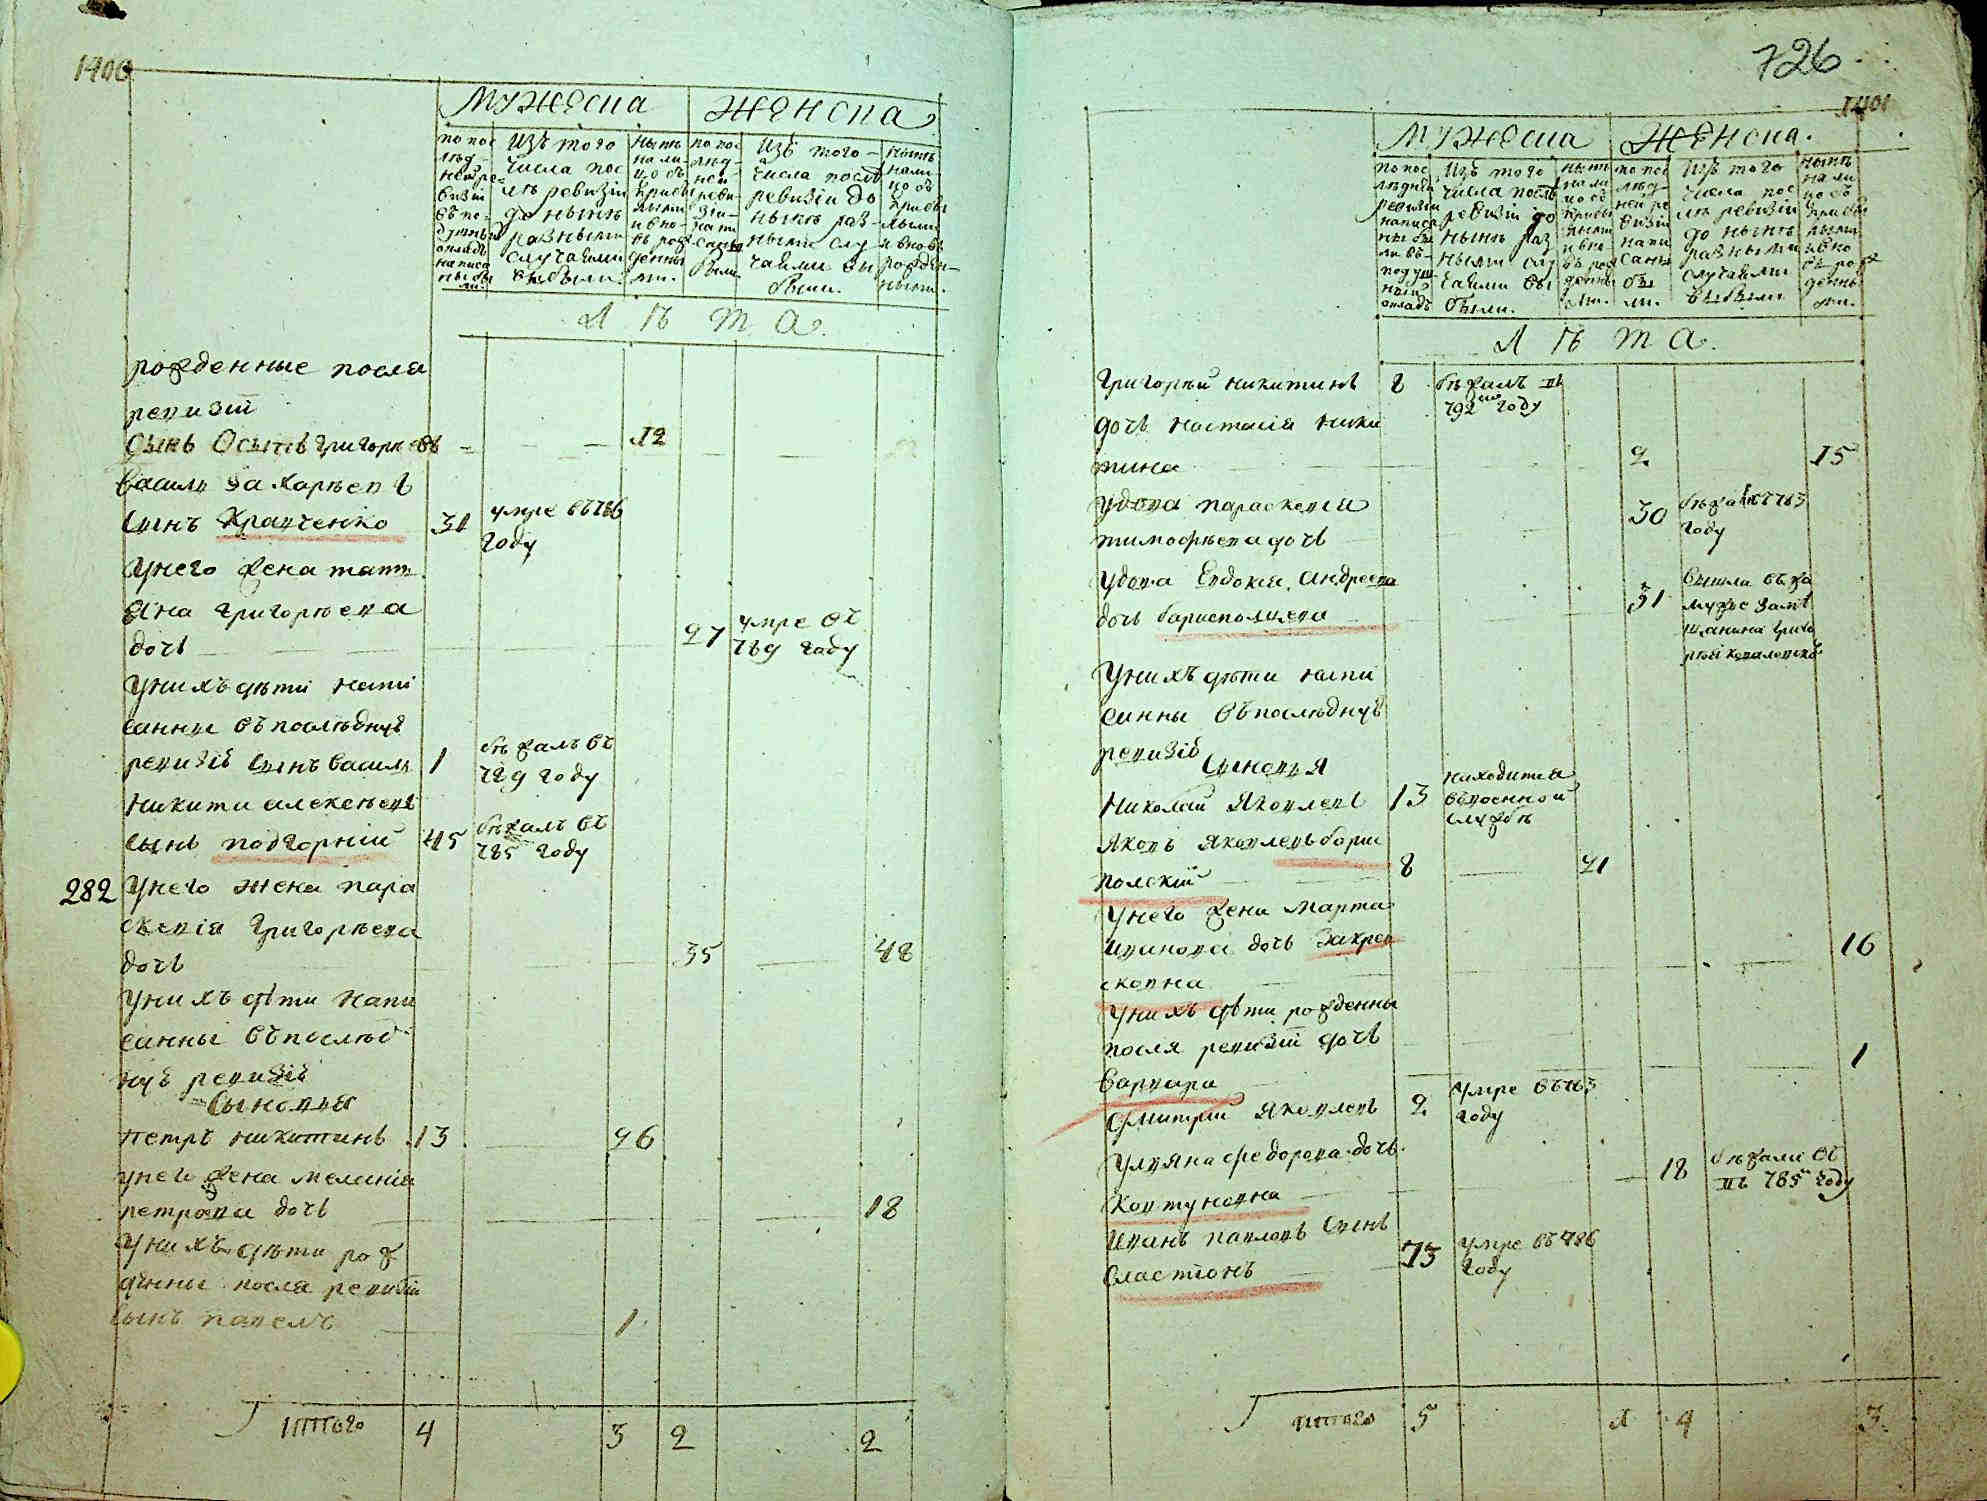 1400
мужеска женска
по пос
лѣд-
ней ре-
визіи
въ по-
душный
окладъ
написа
ны бы
ли.
изъ того
числа пос
лѣ ревизіи
до нынѣ
разными
случаями
выбыли.
нынѣ
на ли-
цо съ
прибы
лыми
и вно-
въ рож
денны
ми.
по пос
лѣд-
ней
реви-
зіи-
напи
саны
были
изъ того-
числа послѣ
ревизіи до
нынѣ раз-
ными слу
чаями вы
были.
нынѣ
нали
цо съ
прибы
лыми
и вновь
рожден-
ными.
лѣта.
рожденные после
ревизіи
сынъ Осипъ григорьевъ 12
василь захарьевъ
сынъ Кравченко 31 умре въ 786
году
унего жена тати
яна григорьева
дочь 27 умре въ
789 году
унихъ дѣти напи
санны въ последнуѣ
ревизіѣ сынъ василь 1 бѣжалъ въ
789 году
никита алексеевъ
сынъ подгорній 45 бѣжалъ въ
785 году
282 унего жена пара
скевія григорьева
дочь 35 48
унихъ дѣти напи
санны въ послѣд-
нуѣ ревизіѣ
сыновья
петръ никитинъ 13 26
унего жена меланія
петрова дочь 18
унихъ дѣти рож
дѣнны после ревизіи
сынъ павелъ 1
итого 4 3 2 2
726
1401
мужеска женска.
по пос
лѣдней
ревизіи
написа
ны бы
ли въ-
подуш
ный
окладъ
изъ того
числа послѣ
ревизіи до
нынѣ раз
ными слу
чаями вы
были.
нынѣ
на ли
цо съ
прибы
лыми
и вно
въ рож
денны
ми.
по пос
лѣд-
ней ре
визіи
напи
саны
бы
ли.
изъ того
числа пос
лѣ ревизіи
до нынѣ
разными
случаями
выбыли
нынѣ
на ли
цо съ
прибы
лыми
и вно
въ рож
денны
ми.
лѣта.
григорій никитинъ 8 бѣжалъ въ
792 году
дочь настасія ники
тина 2 15
удова параскевія
тимофѣева дочь 30 бѣжа въ 783
году
удова Евдокія андреева
дочь бариспольцева 31 вышла въ за
мужъ за мѣ
щанина григо
рія коваленка
унихъ дѣти напи
санны въ последнуѣ
ревизіѣ
сыновья
николай яковлевъ 13 находится
въ военной
службѣ
яковъ яковлевъ бари
полскій 8 21
унего жена марта
иванова дочь закрев
сковна 16
унихъ дѣти рожденны
после ревизіи дочь
варвара 1
дмитрій яковлевъ 2 умре въ 783
году
уляна федорова дочь
ковтуновна 18 бѣжали
въ 785 году
иванъ павловъ сынъ
сластіонъ 73 умре въ 786
году
итого 5 1 4 3